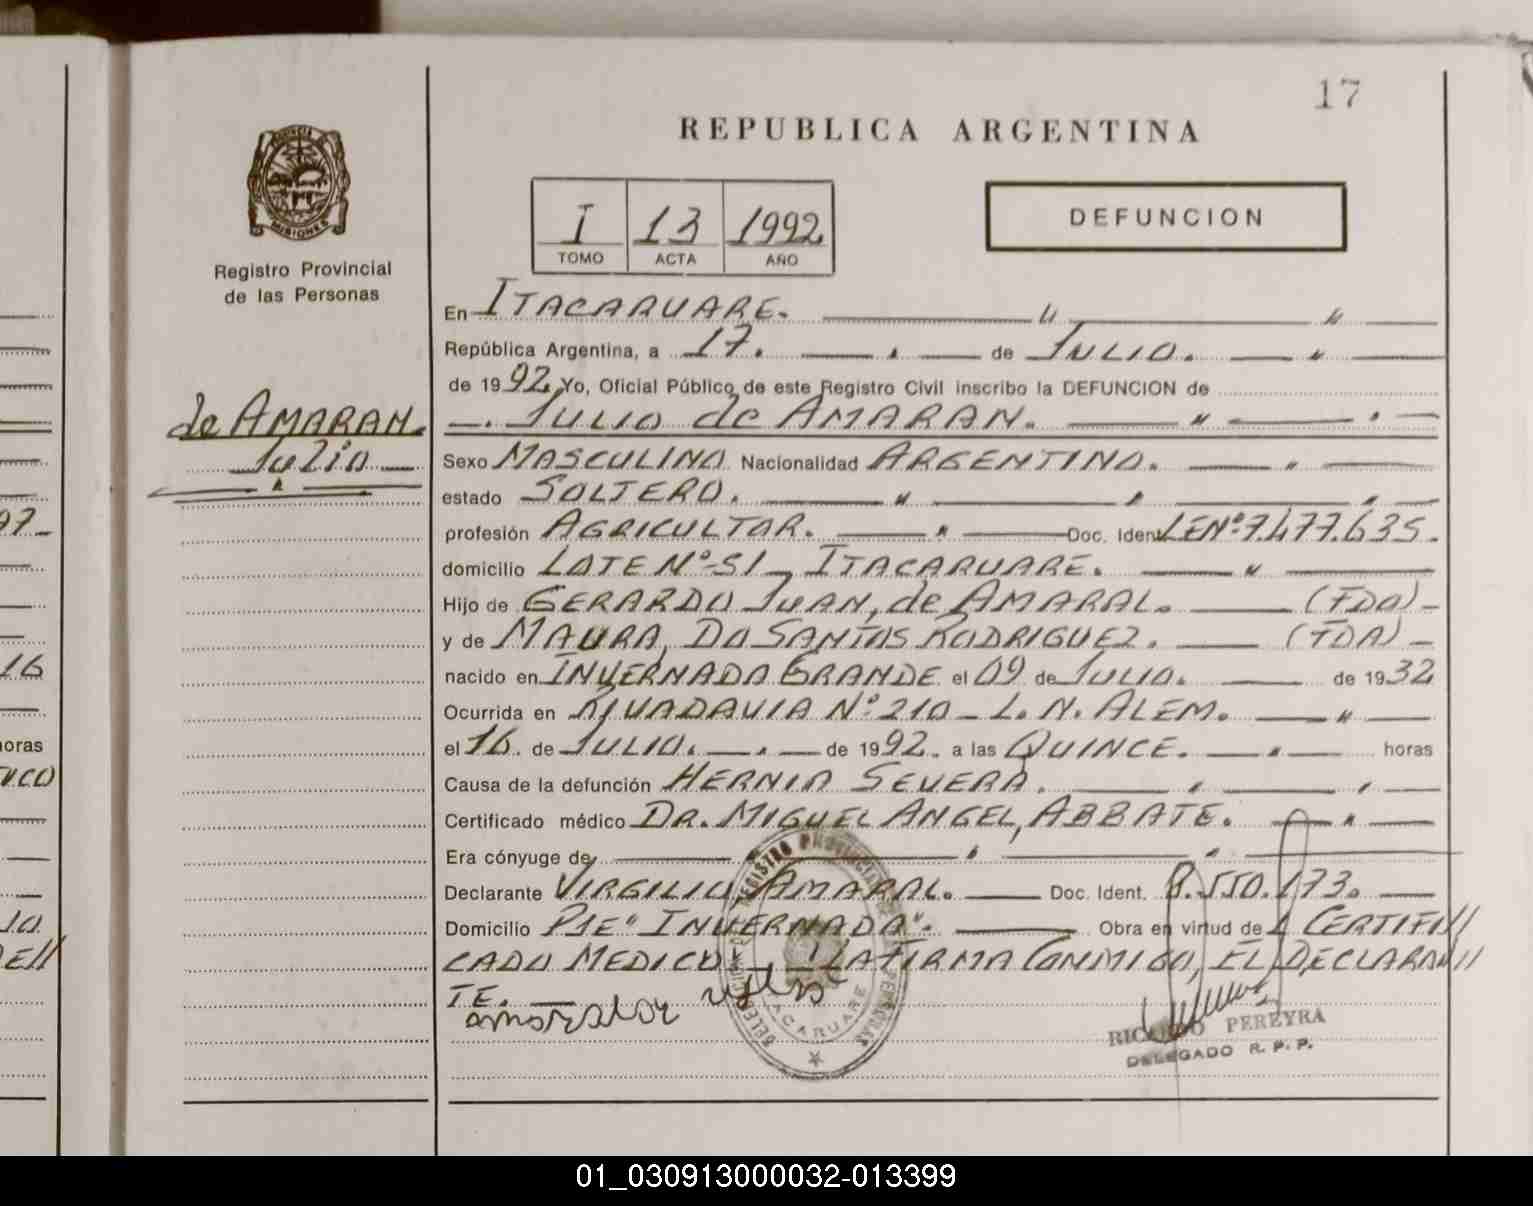 17
REPUBLICA ARGENTINA
PROVINCIA
MISIONES
Registro Provincial
de las Personas
I 13 1992
TOMO ACTA AÑO
DEFUNCION
de AMARAN
Julio
En ITACARUARE.
República Argentina, a 17. de JULIO.
de 1992 Yo, Oficial Público de este Registro Civil inscribo la DEFUNCION de
JULIO de AMARAN.
Sexo MASCULINO Nacionalidad ARGENTINO.
estado SOLTERO.
profesión AGRICULTOR. Doc. Ident LE Nº 7.477.635.
domicilio LOTE Nº 51, ITACARUARE.
Hijo de GERARDO JUAN, de AMARAL. (FDO)
y de MAURA, DO SANTOS RODRIGUEZ. (FDA)
nacido en INVERNADA GRANDE el 09 de JULIO. de 1932
Ocurrida en RIVADAVIA Nº 210 - L. N. ALEM.
el 16 de JULIO. de 1992. a las QUINCE. horas
Causa de la defunción HERNIA SEVERA.
Certificado médico DR. MIGUEL ANGEL, ABBATE.
Era cónyuge de
Declarante VIRGILIO, AMARAL. Doc. Ident. 8.550.173.
Domicilio PJE "INVERNADA". Obra en virtud de CERTIFI//
CADO MEDICO LA FIRMA CONMIGO, EL DECLARAN//
TE.
RICARDO PEREYRA
DELEGADO R. P. P.
97
16
horas
10
01_030913000032-013399